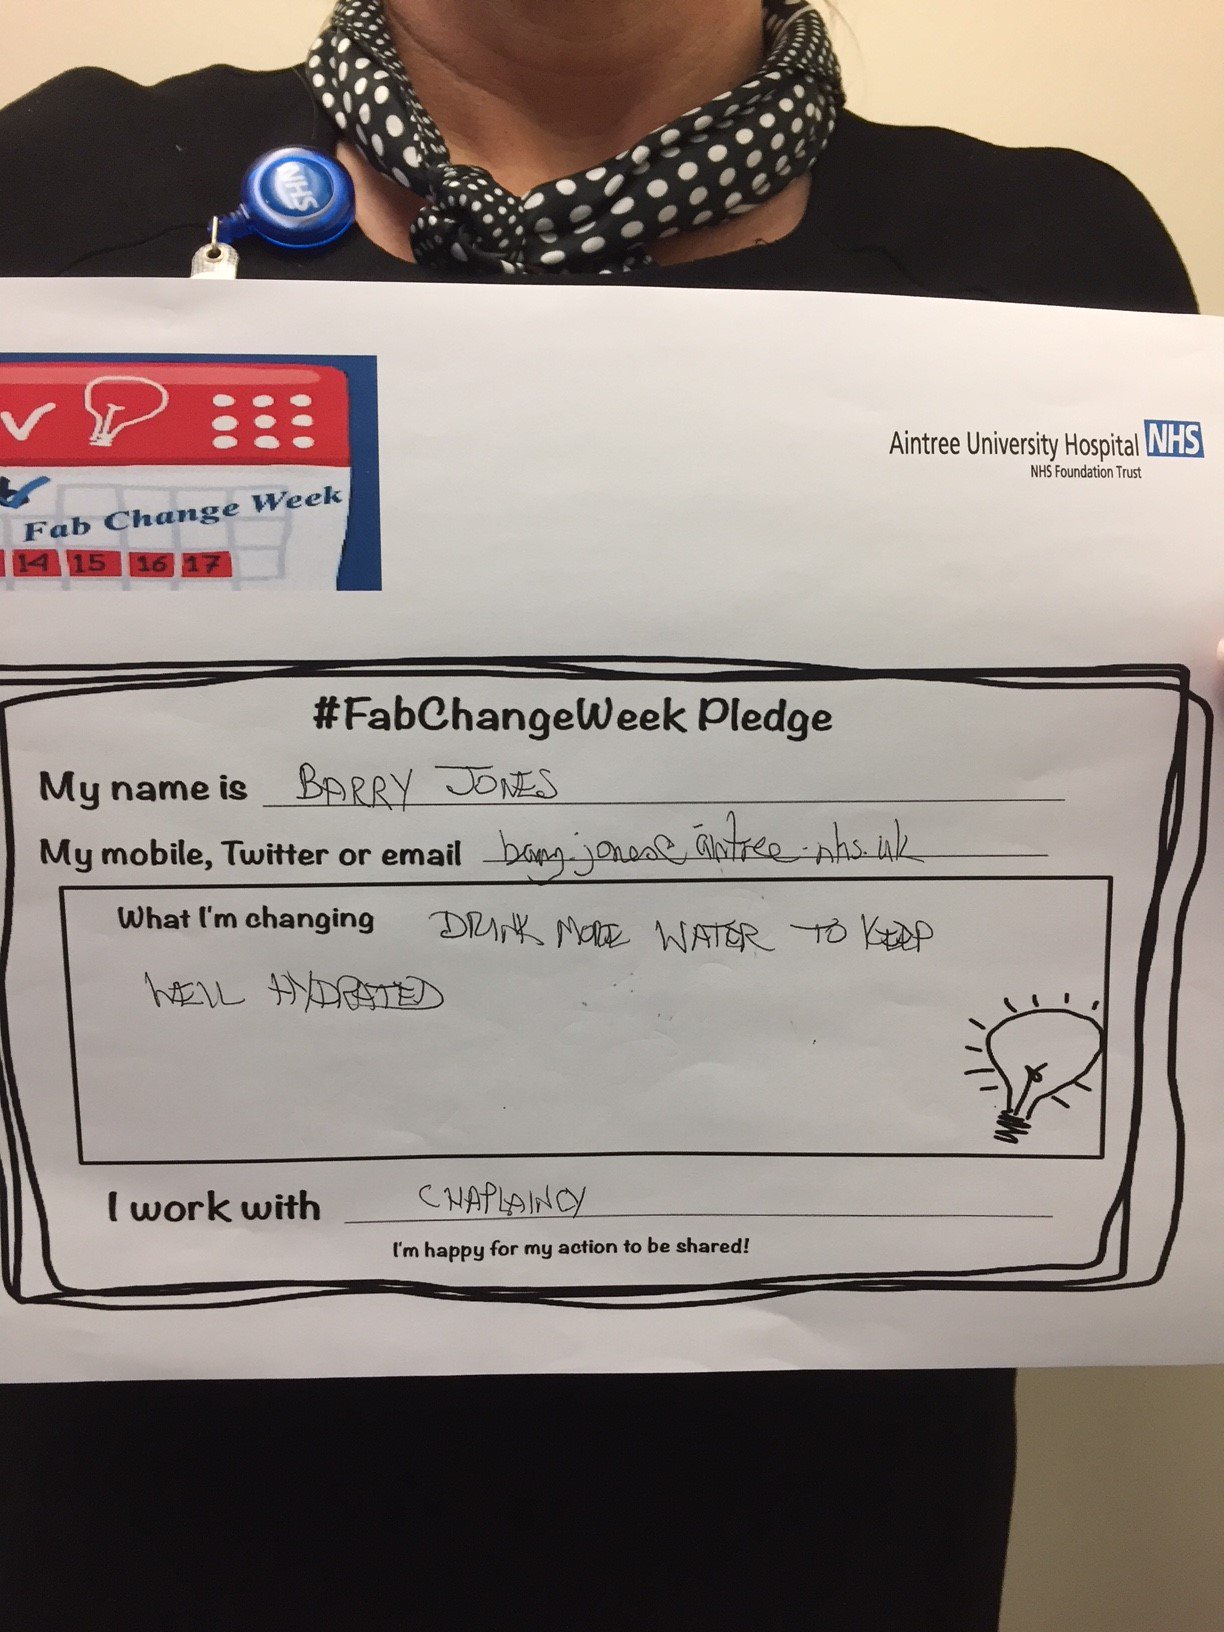 NHS
Aintree University Hospital NHS
NHS Foundation Trust
Fab Change Week
14 15 16 17
#FabChangeWeek Pledge
My name is BARRY JONES
My mobile, Twitter or email barry.jones@aintree.nhs.uk
What I'm changing DRINK MORE WATER TO KEEP
WELL HYDRATED
I work with CHAPLAINCY
I'm happy for my action to be shared!